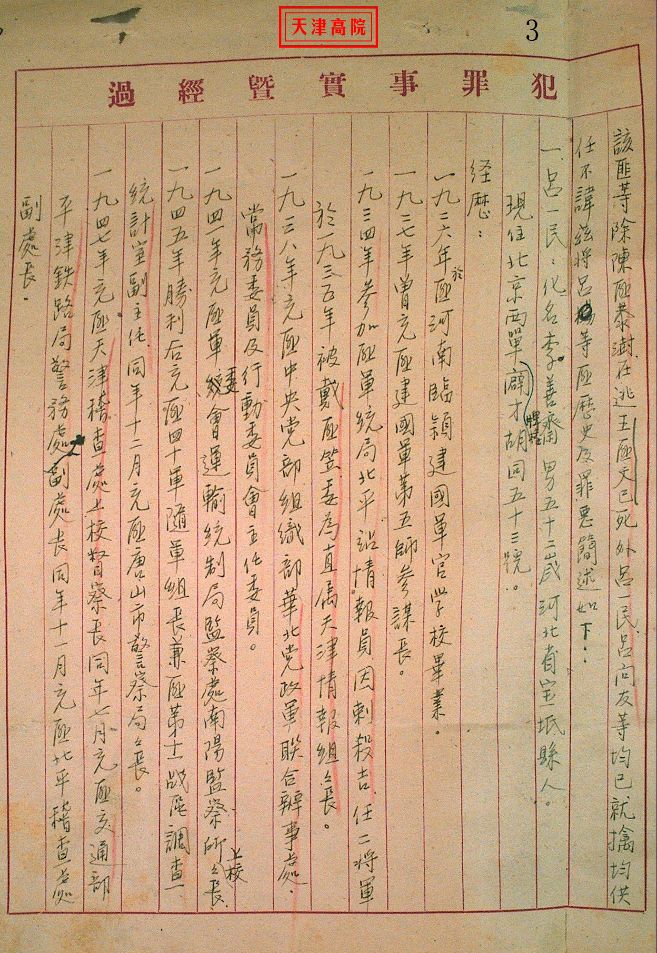 天津高院
3
犯罪事實暨經過
該匪等除陳匪泰澍在逃王匪文已死外呂一民呂向友等均已就擒均供
任不諱茲將呂等匪歷史及罪惡簡述如下：
一、呂一民：化名李善齋男五十三歲河北省宝坻縣人。
現住北京西單辟才胡同五十三號。
経歷：
一九二六年於匪河南臨潁建國軍官学校畢業。
一九二七年曾充匪建國軍第五師参謀長。
一九三四年參加匪軍統局北平站情報員因刺殺吉、任二将軍
於一九三五年被戴匪笠委為直属天津情報組々長。
一九三八年充匪中央党部組織部華北党政軍联合辦事處、
常務委員及行動委員會主任委員。
一九四一年充匪軍委會運輸統制局監察處南陽監察所上校々長
一九四五年勝利后充匪四十軍随軍組長兼匪第十一战區調查
統計室副主任同年十二月充匪唐山市警察局々長。
一九四七年充匪天津稽查處上校督察長同年七月充匪交通部
平津鉄路局警務處副處長同年十一月充匪北平稽查處
副處長。